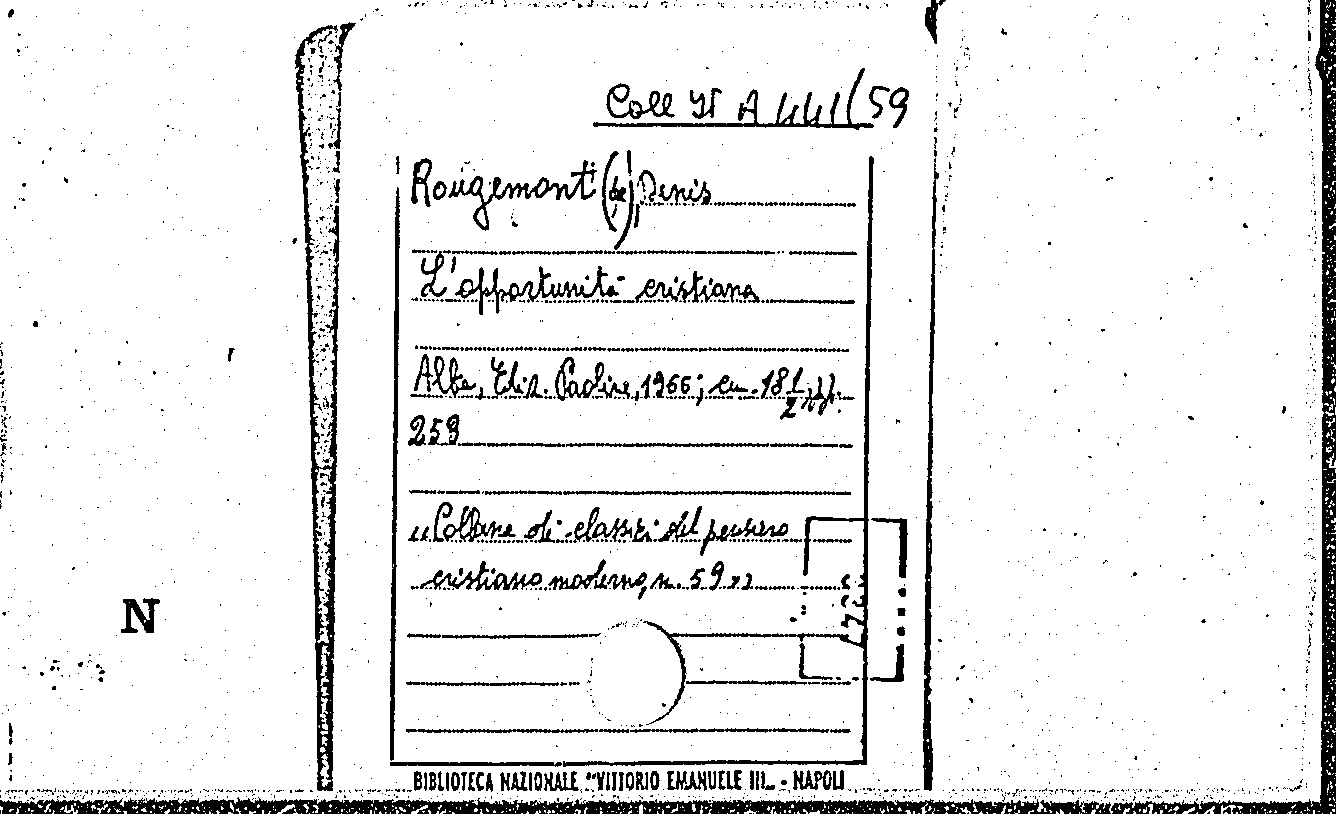 Coll It A 441/59
Rougemont (de), Denis
L'opportunità cristiana
Alba, Ediz. Paoline, 1966; cm. 18 1/2, pp.
259
"Collana di classici del pensiero
cristiano moderno, n. 59"
N
BIBLIOTECA NAZIONALE "VITTORIO EMANUELE III„ - NAPOLI